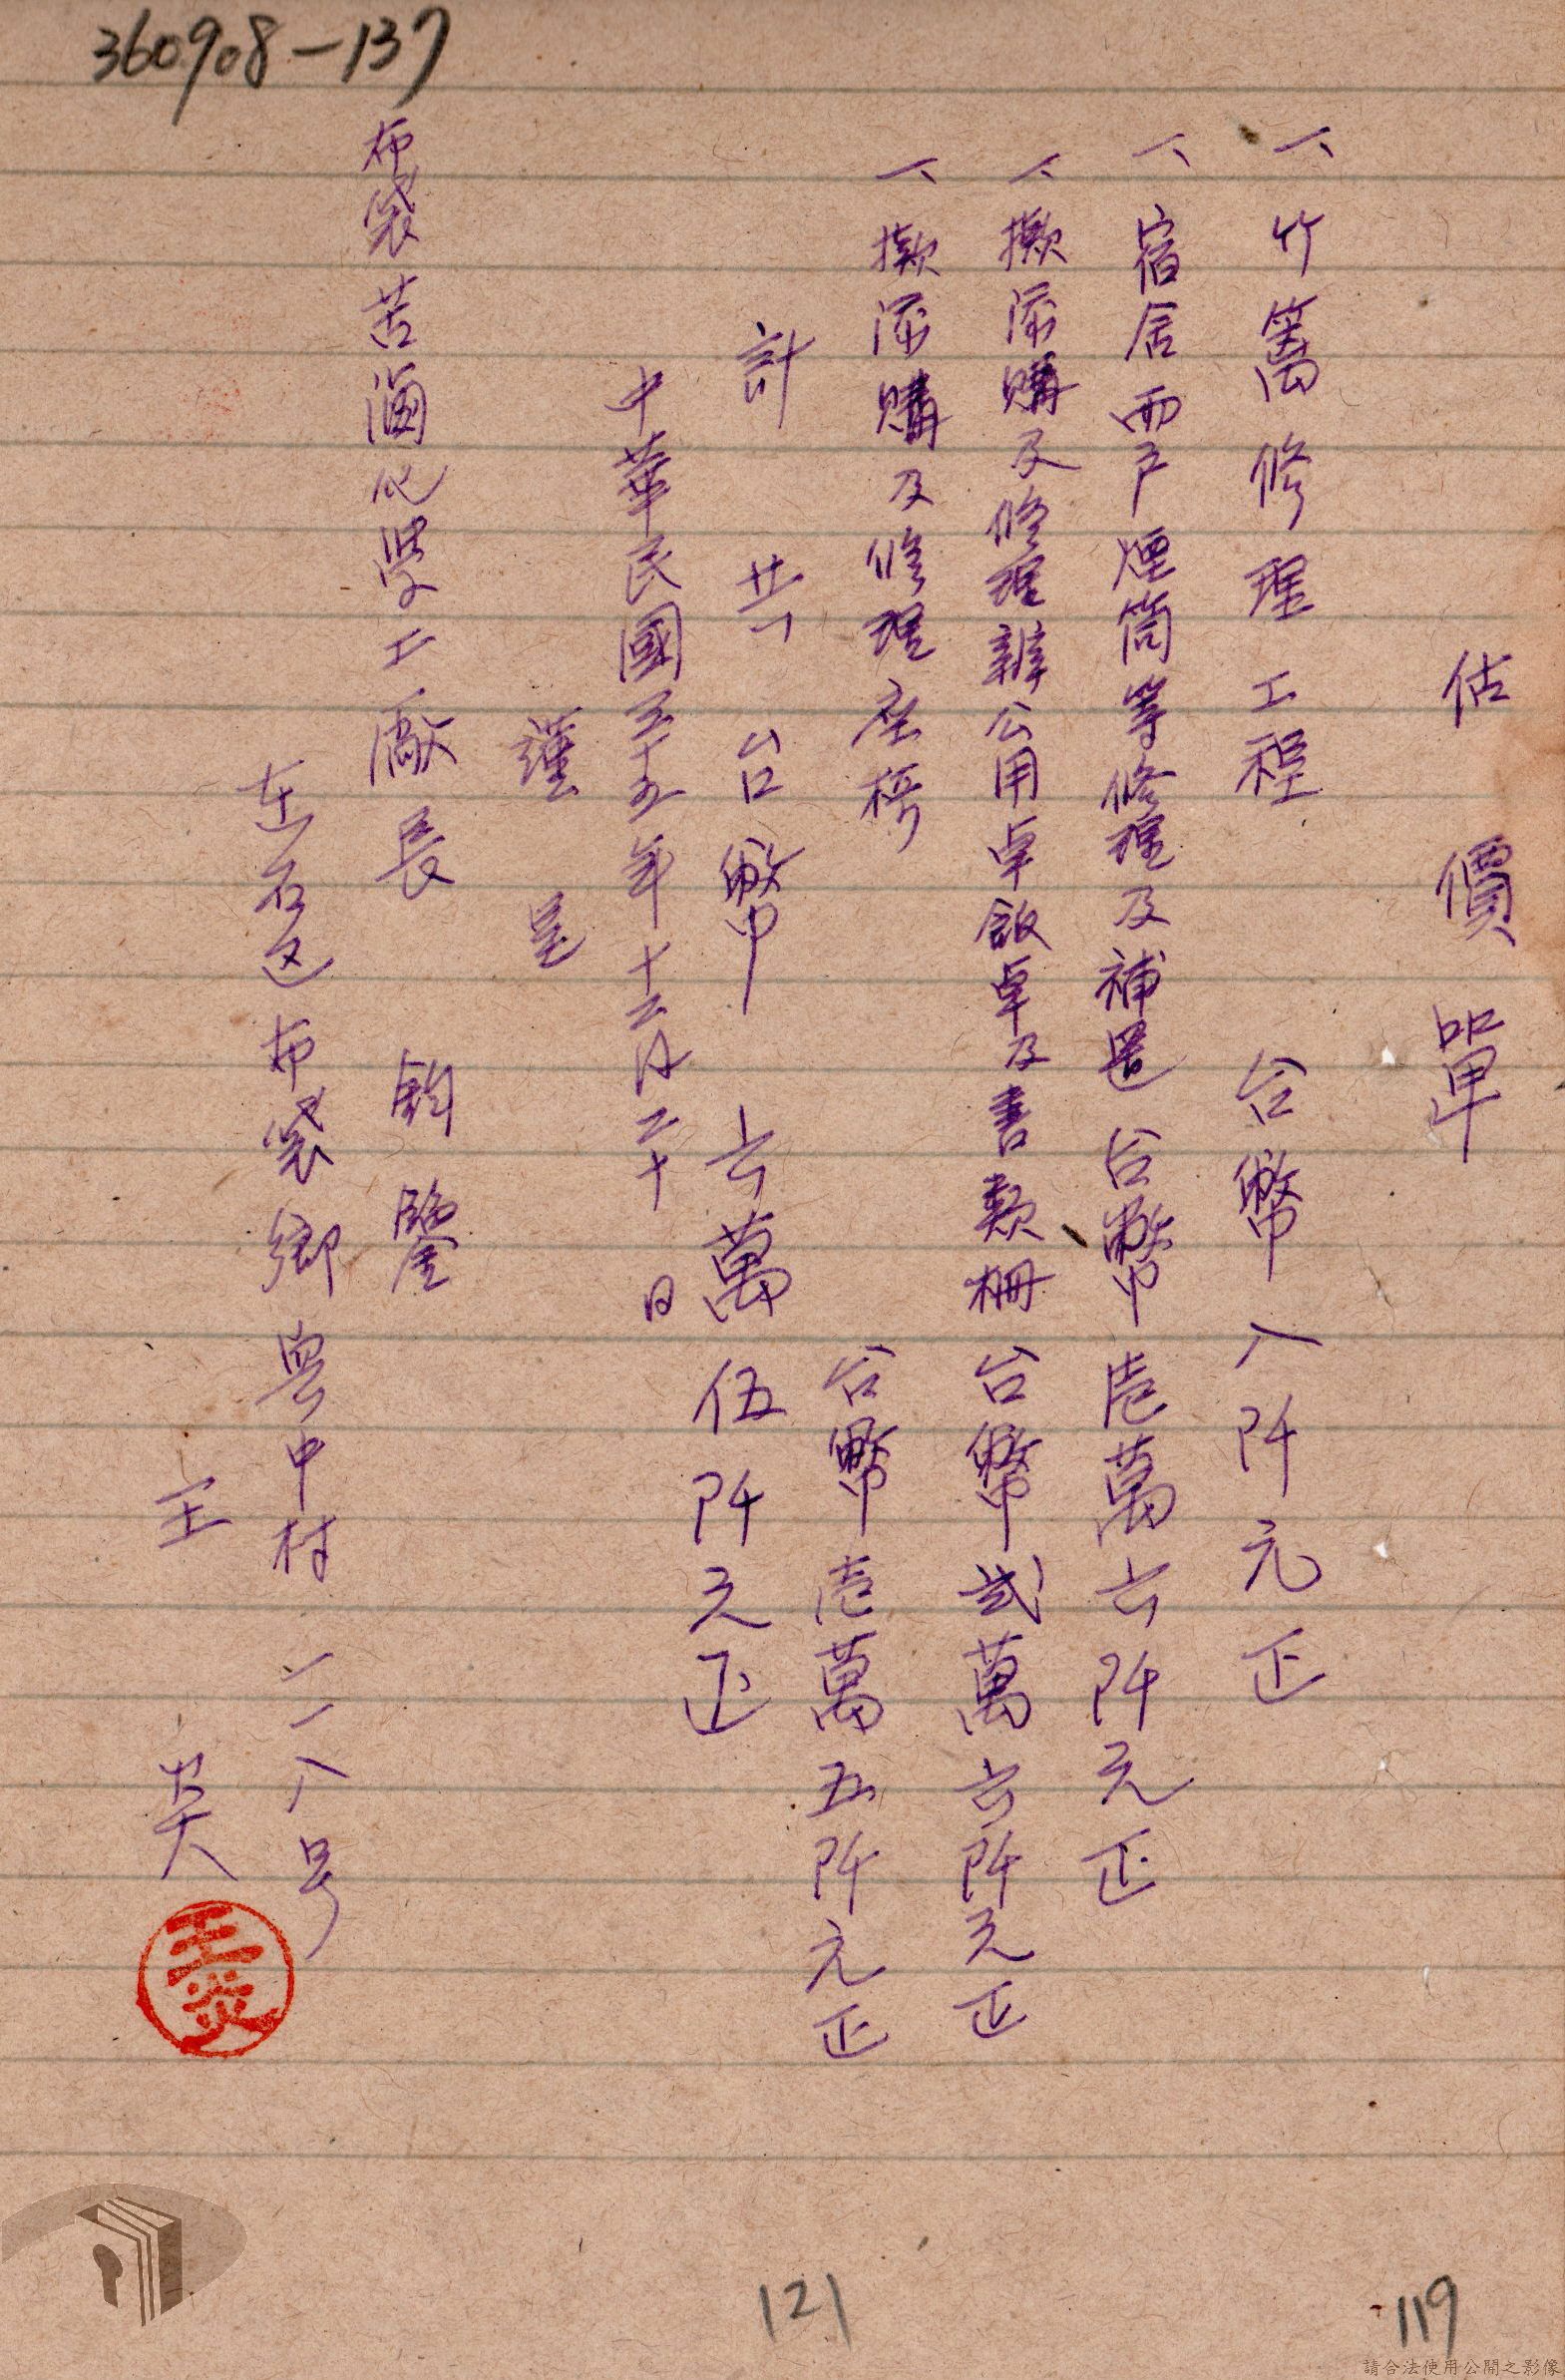 360908-137
估價單
一、竹篱修理工程 台幣八阡元正
一、宿舍雨戶煙筒等修理及補置 台幣壱萬六阡元正
一、擬添購及修理辦公用卓飯卓及書類柵 台幣弍萬六阡元正
一、擬添購及修理座椅 台幣壱萬五阡元正
計共台幣六萬伍阡元正
中華民國三十五年十二月二十日
謹呈
布袋苦滷化學工廠長 鈞鑒
東石区布袋鄉興中村二八号
王炎
王炎
121
119
請合法使用公開之影像